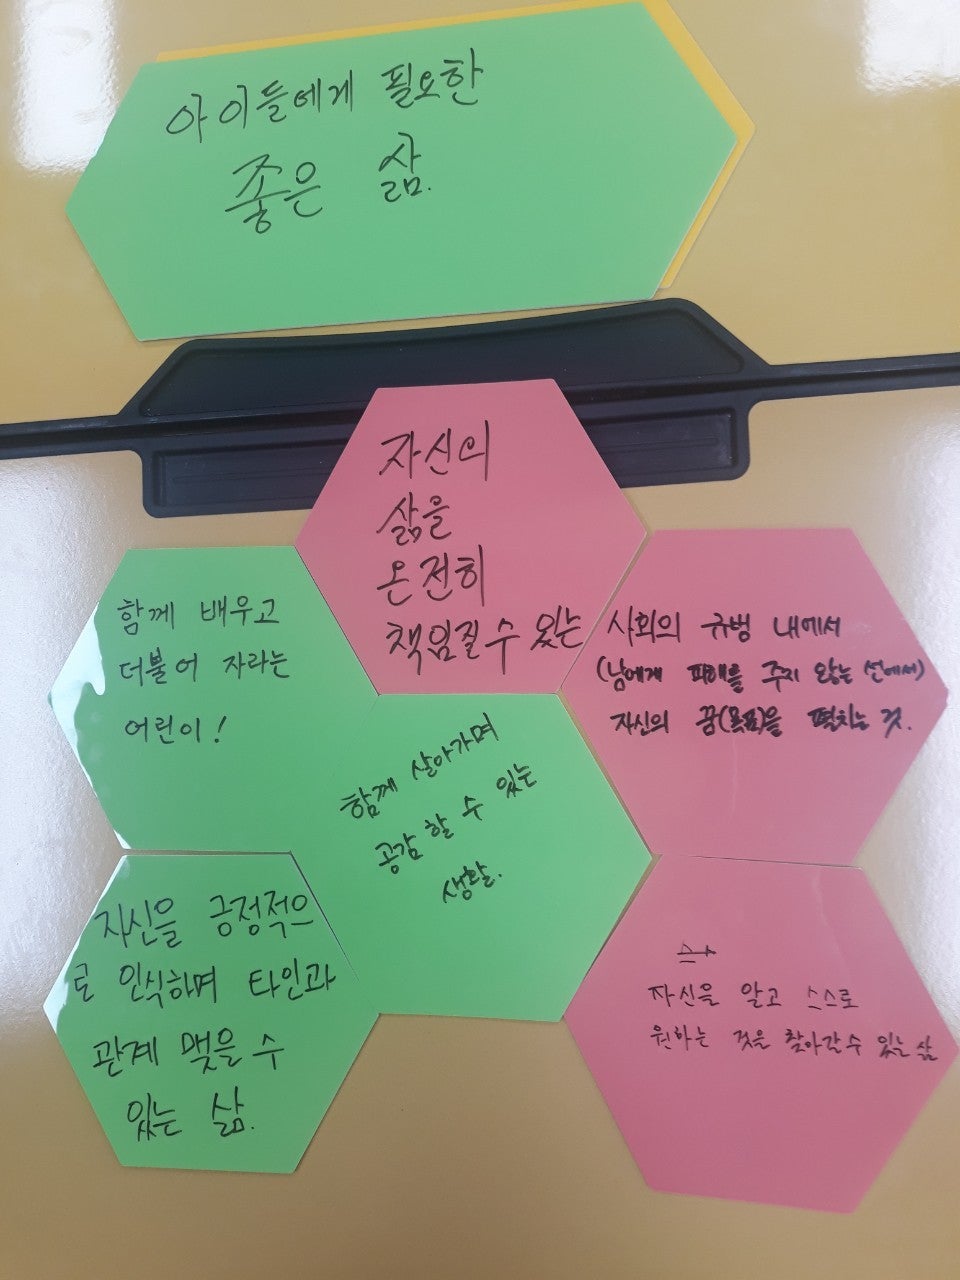 아이들에게 필요한
좋은 삶.
자신의
삶을
온전히
책임질 수 있는
함께 배우고
더불어 자라는
어린이!
사회의 규범 내에서
(남에게 피해를 주지 않는 선에서)
자신의 꿈(목표)을 펼치는 것.
함께 살아가며
공감 할 수 있는
생활.
자신을 긍정적으
로 인식하며 타인과
관계 맺을 수
있는 삶.
자신을 알고 스스로
원하는 것을 찾아갈 수 있는 삶